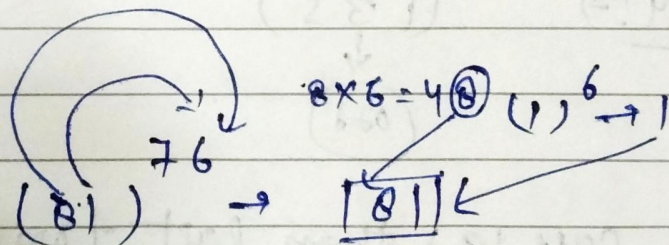 8×6=48 (1)⁶→1
(81)⁷⁶ → 81